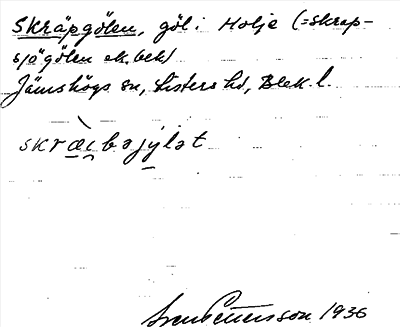 Skräpgölen, göl i Holje (=skräp-
sjögölen ek. bek.)
Jämshögs sn, Listers hd, Blek. l.
skræ̀i̯bəjylət
Sven Petersson 1936